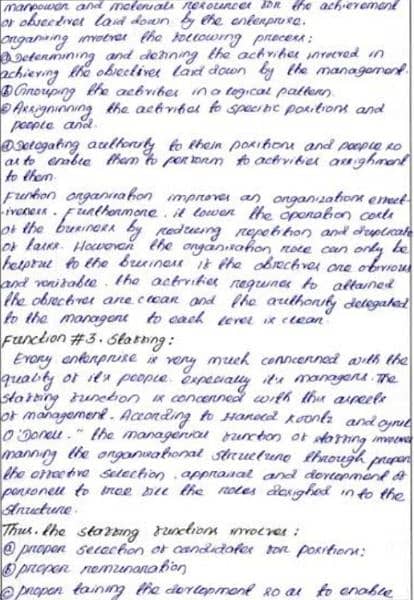 manpower and materials resources for the achievement
of objectives laid down by the enterprise.
Organising involves the following process:
ⓐ Determining and defining the activities involved in
achieving the objectives laid down by the management.
ⓑ Grouping the activities in a logical pattern.
ⓒ Assigninning the activities to specific positions and
people and.
ⓓ Delegating authority to their positions and people so
as to enable them to perform to activities assighment
to them.
Funtion organisation improves an organizations effect-
iveness. Furthermore, it lower the operation costs
of the business by reducing repetition and duplicate
of tasks. However the organisation role can only be
helpful to the business if the objectives are obvious
and veritable. the activities requires to attained
the objectives are clear and the authority delegated
to the managers to each level is clear.
Function #3. Staffing:
Every enterprise is very much conncerned with the
quality of its people, especially its managers. The
staffing function is concerned with this aspects
of management. According to Harold Koontz and cyril
O'Donell. "the managerial function of staffing involves
manning the organisational structure through proper
the effective selection, appraisal and dovelopment of
personell to the roles desighed in to the
structure.
Thus, the staffing functions involves:
ⓐ proper selection of candidates for positions:
ⓑ proper remunaration
ⓒ proper taining the dovelopment so as to enable